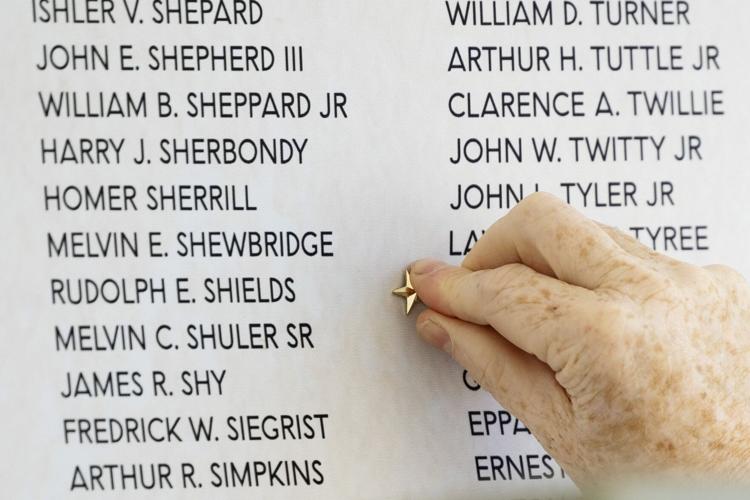 ISHLER V. SHEPARD
JOHN E. SHEPHERD III
WILLIAM B. SHEPPARD JR
HARRY J. SHERBONDY
HOMER SHERRILL
MELVIN E. SHEWBRIDGE
RUDOLPH E. SHIELDS
MELVIN C. SHULER SR
JAMES R. SHY
FREDRICK W. SIEGRIST
ARTHUR R. SIMPKINS
WILLIAM D. TURNER
ARTHUR H. TUTTLE JR
CLARENCE A. TWILLIE
JOHN W. TWITTY JR
JOHN TYLER JR
TYREE